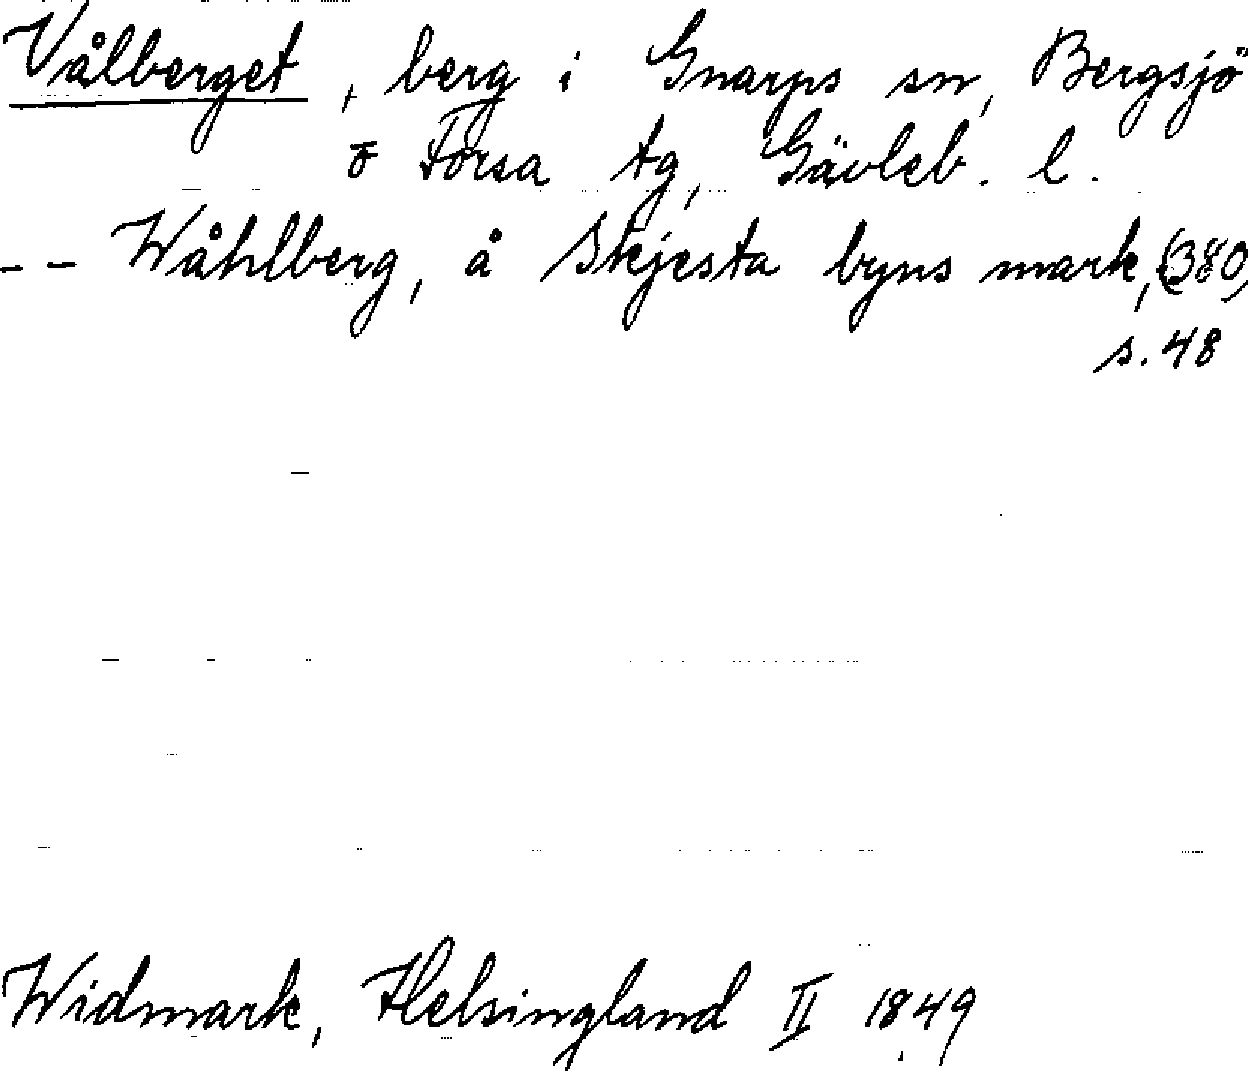 Vålberget, berg i Gnarps sn, Bergsjö
o Forsa tg, Gävleb. l.
-- Wåhlberg, å Skjesta byns mark, (380)
s. 48
Widmark, Helsingland II 1849